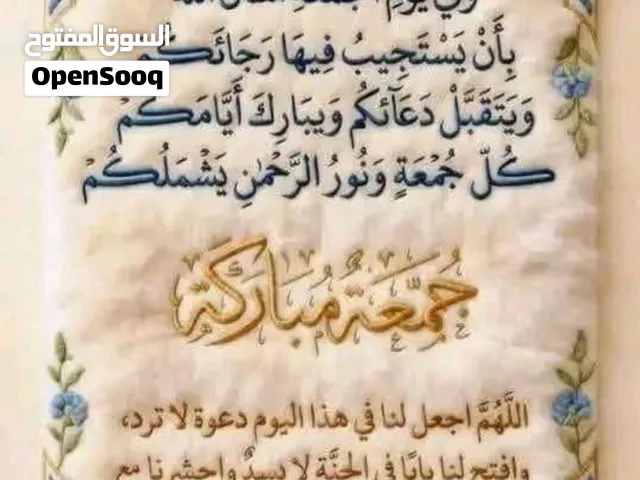 السوق المفتوح
OpenSooq
بِأَنْ يَسْتَجِيبُ فِيهَا رَجَائَكُم
وَيَتَقَبَّلْ دَعَآئكُم وَيبَارِكَ أَيَّامَكُمْ
كُلّ جُمْعَةٍ وَنُورُ الرَّحْمٰنِ يَشْمَلُكُمْ
جُمعَةٌ مُبَارَكَة
اللَّهُمَّ اجعل لنا في هذا اليوم دعوة لا ترد،
وافتح لنا بابًا في الجنَّة لا يسدُّ واحشرنا مع